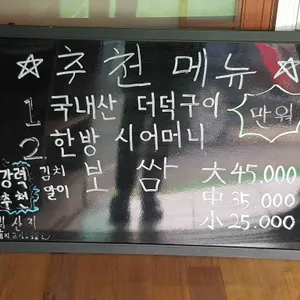 ☆ 추천메뉴 ☆
1. 국내산 더덕구이 만원
2. 한방 시어머니
강력추천 김치말이 보쌈 大 45,000
中 35,000
小 25,000
원산지